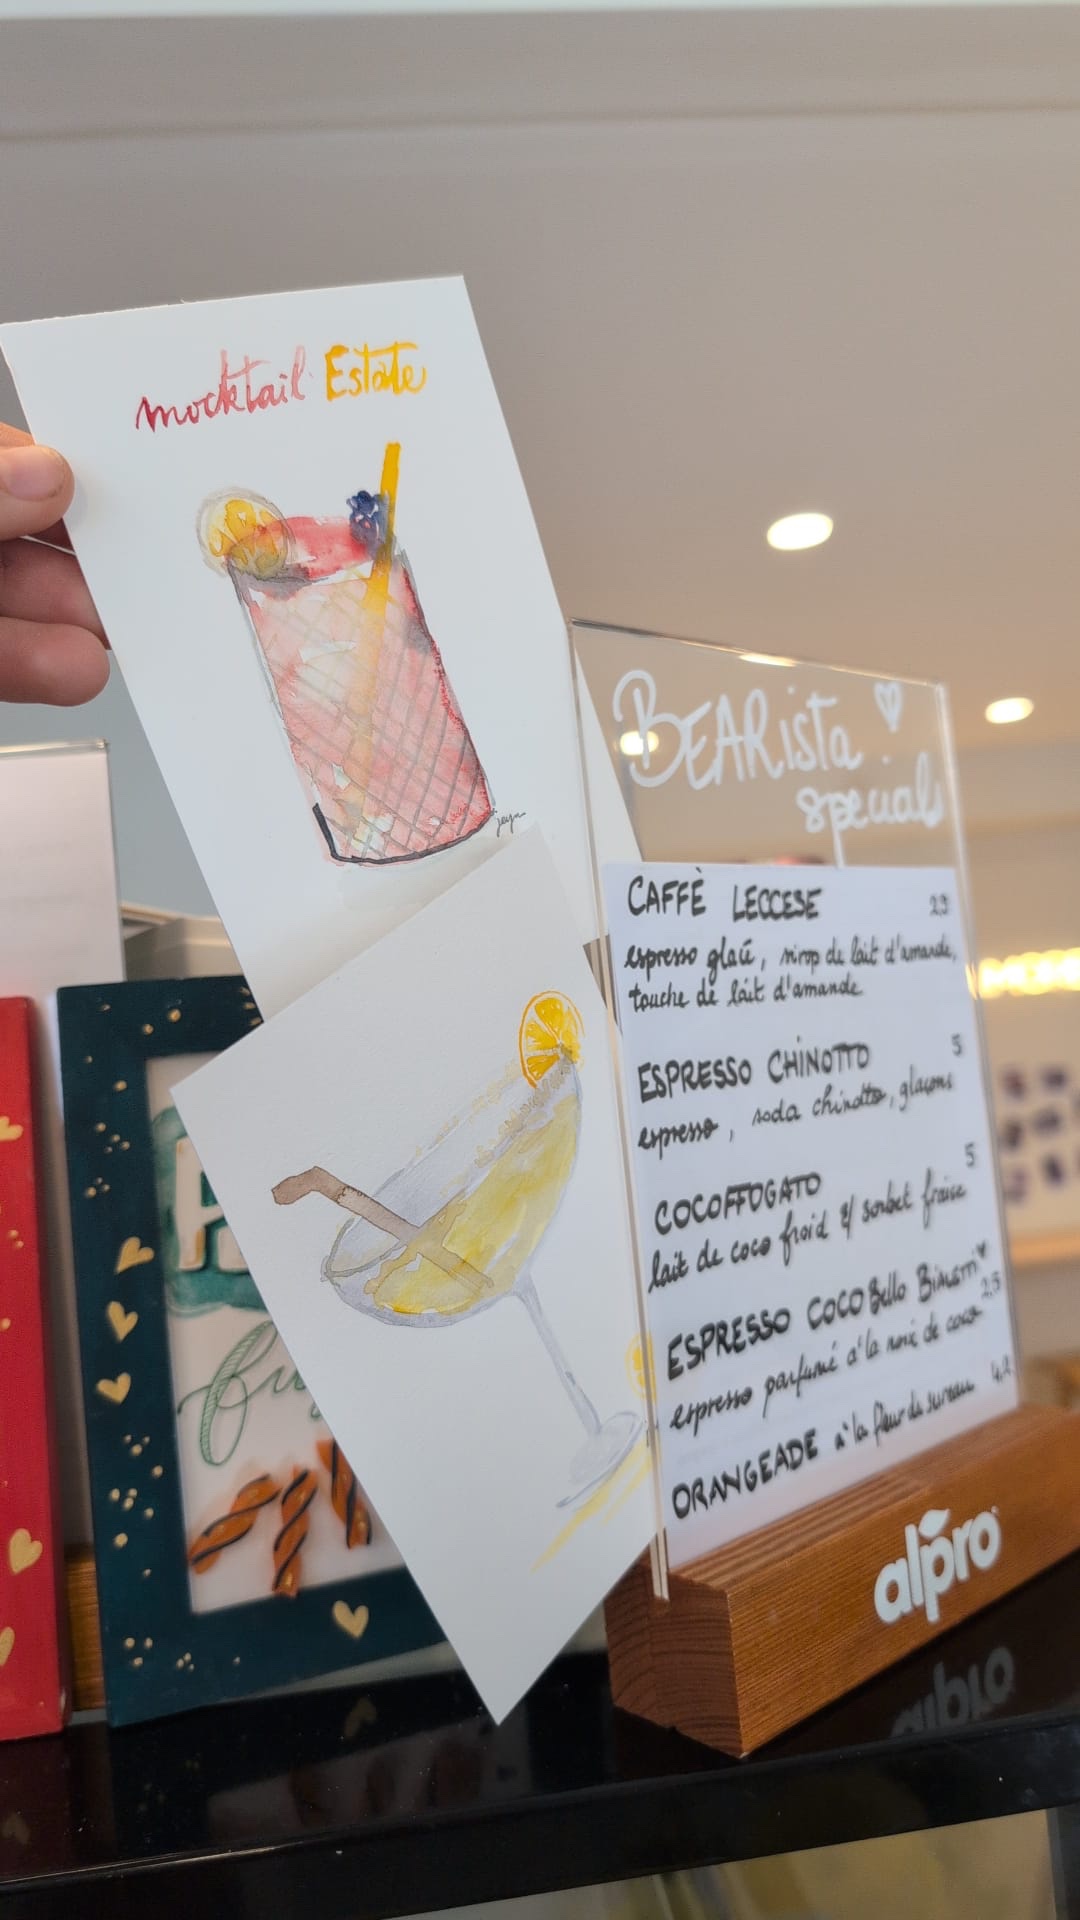 mocktail Estate
jeyn
BEARista
specials
CAFFÈ LECCESE 2,9
espresso glacé, sirop de lait d'amande,
touche de lait d'amande
ESPRESSO CHINOTTO 5
espresso, soda chinotto, glaçons
COCOFFOGATO 5
lait de coco froid & sorbet fraise
ESPRESSO COCO Bello Bialetti 2,5
espresso parfumé à la noix de coco
ORANGEADE à la fleur de sureau 4,2
alpro